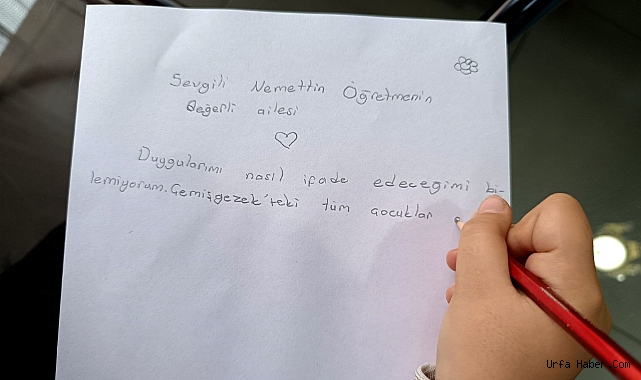 Sevgili Nemettin Öğretmenin
değerli ailesi
Duygularımı nasıl ifade edeceğimi bi-
lemiyorum. Çemişgezek'teki tüm çocuklar
Urfa Haber.Com